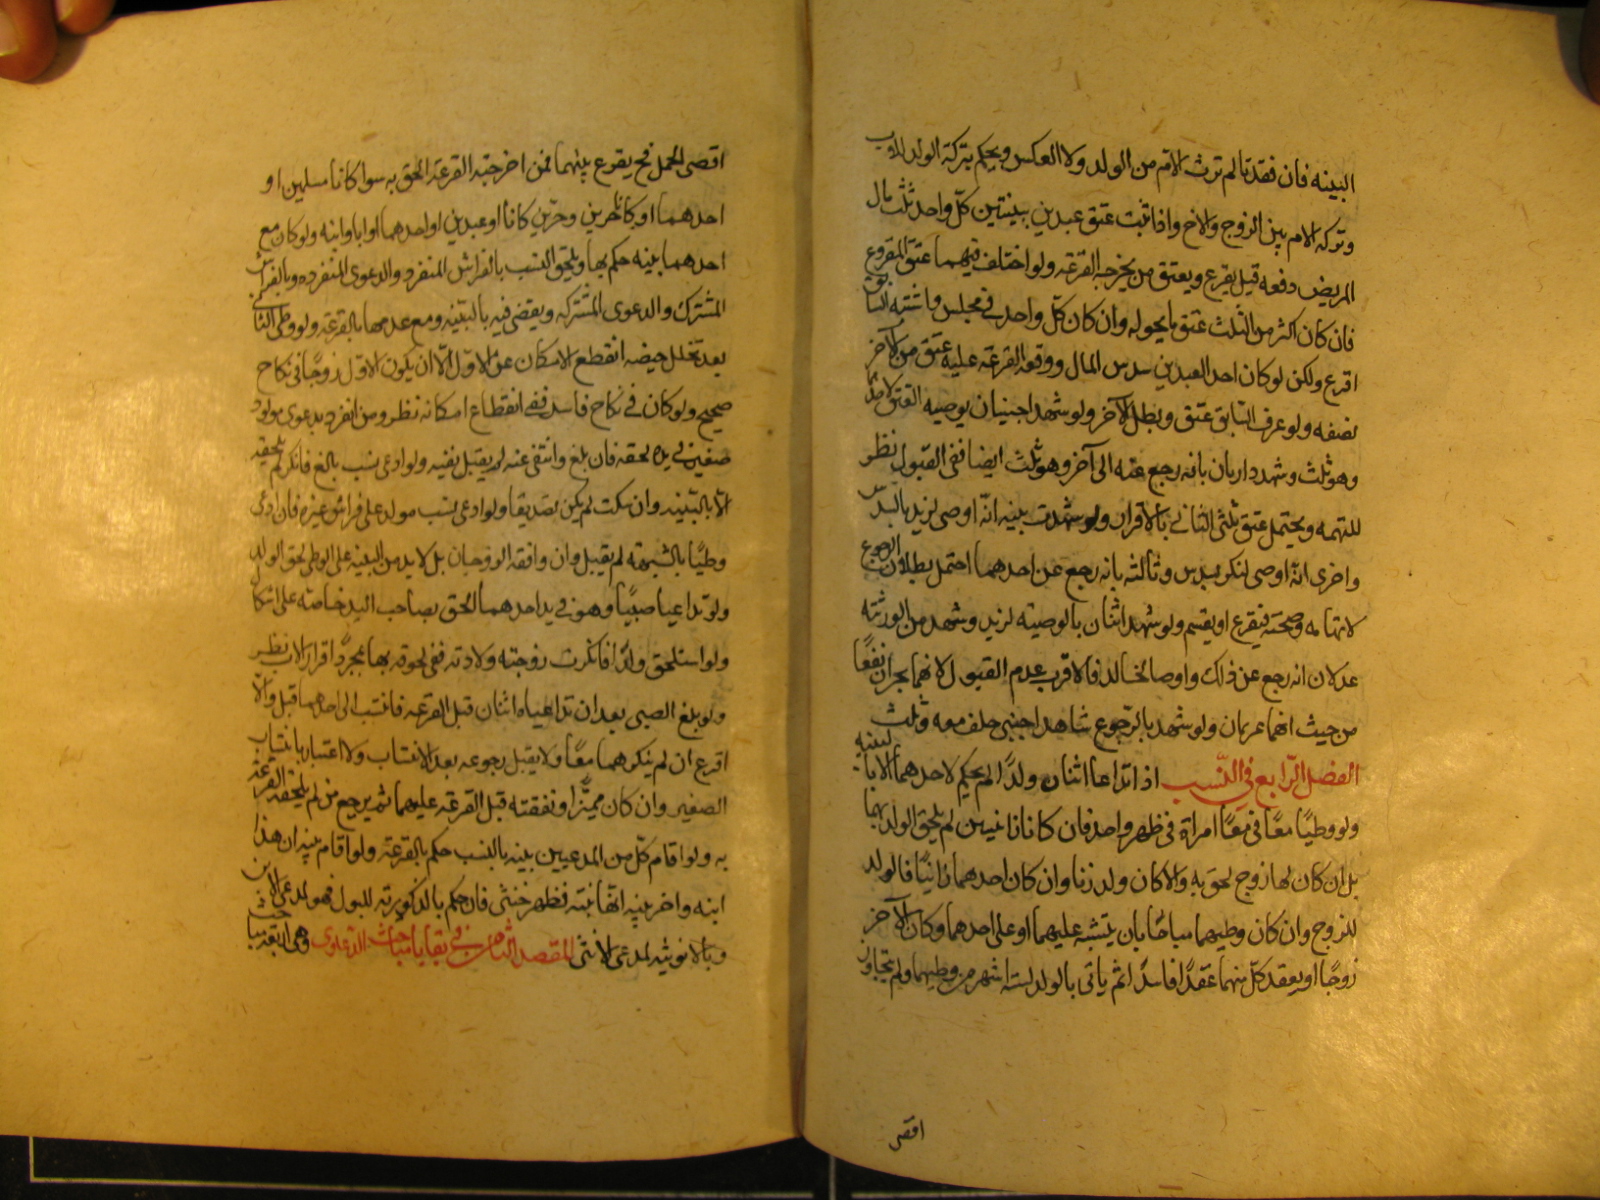 البينه فان فقدتا لم ترث الام من الولد ولا العكس ويحكم بتركة الولد للاب
وتركه الام بين الزوج والاخ واذا ثبت عتق عبدين ببينتين كل واحد ثلث مال
المريض دفعه قيل يقرع ويعتق من يخرجه القرعه ولو اختلف قيمتهما عتق المقروع
فان كان اكثر من الثلث عتق ما يحوله وان كان كل واحد في مجلس واشتبه السابق
اقرع ولكن لو كان احد العبدين سدس المال ووقعه القرعه عليه عتق من الآخر
نصفه ولو عرف السابق عتق وبطل الآخر ولو شهد اجنبيان بوصيه العتق لاحد
وهو ثلث وشهد وارثان بانه رجع عنه الى آخر وهو ثلث ايضا ففي القبول نظر
للتهمه ويحتمل عتق ثلثى الثانى بالاقرار ولو شهدت بينه انه اوصى لزيد بالسدس
واخرى انه اوصى لبكر بسدس وثالثه بانه رجع عن احدهما احتمل بطلان الرجوع
لابهامه وصحته فيقرع او يقسم ولو شهد اثنان بالوصيه لزيد وشهد من الورثه
عدلان انه رجع عن ذلك واوصا لخالد فالاقرب عدم القبول لانهما يجران نفعًا
من حيث انهما غريمان ولو شهد بالرجوع شاهد اجنبى حلف معه وثلث
الفصل الرابع في النسب اذا تداعا اثنان ولدًا لم يحكم لاحدهما الا بالبينه
ولو وطيًا معًا امراة في طهر واحد فان كانا زانيين لم يلحق الولد بهما
بل ان كان لها زوج لحق به والا كان ولد زنا وان كان احدهما زانيًا فالولد
للزوج وان كان وطيهما مباحًا بان يشتبه عليهما او على احدهما وكان الآخر
زوجًا او يعقد كل منهما عقدًا فاسدًا ثم ياتى بالولد لسته اشهر من وطيهما ولم يتجاوز
اقصى
اقصى الحمل فح يقرع بينهما فمن اخرجته القرعة الحق به سوا كانا مسلمين او
احدهما او كافرين وحرين كانا او عبدين او احدهما او ابا وابنه ولو كان مع
احدهما بينه حكم بها ويلحق النسب بالفراش المنفرد والدعوى المنفرده وبالفراش
المشترك والدعوى المشتركه ويقضى فيه بالبينه ومع عدمها بالقرعه ولو وطى الثانى
بعد تخلل حيضه انقطع الامكان عن الاول الا ان يكون الاول زوجًا في نكاح
صحيح ولو كان في نكاح فاسد ففى انقطاع امكانه نظر ومن انفرد بدعوى مولود
صغير في يده لحقه فان بلغ وانتفى عنه لم يقبل نفيه ولو ادعى نسب بالغ فانكر لم يلحقه
الا بالبينه وان سكت لم يكن تصديقا ولو ادعى نسب مولد على فراش غيره فان ادعى
وطيًا بالشبهه لم يقبل وان وافقه الزوجان بل لابد من البينه على الوطى لحق الولد
ولو تداعيا صبيًا وهو في يد احدهما الحق بصاحب اليد خاصه على اشكال
ولو استلحق ولدًا فانكرت زوجته ولادته ففى لحوقه بها بمجرد اقرار الاب نظر
ولو بلغ الصبى بعد ان تداعياه اثنان قبل القرعه فانتسب الى احدهما قبل والا
اقرع ان لم ينكرهما معًا ولا يقبل رجوعه بعد الانتساب ولا اعتبار بانتساب
الصغير وان كان مميزًا ونفقته قبل القرعه عليهما ثم يرجع من لم يلحقه القرعه
به ولو اقام كل من المدعيين بينه بالنسب حكم بالقرعه ولو اقام بينه ان هذا
ابنه واخر بينه انها بنته فظهر خنثى فان حكم بالذكوريته للبول فهو لمدعى الابن
وبالانوثيه لمدعى الانثى المقصد الثامن في بقايا مباحث الدعاوى وهى اربعه مباحث